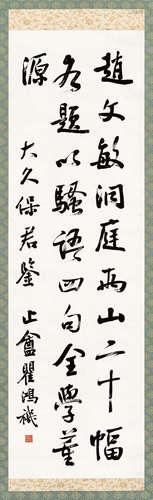 趙文敏洞庭兩山二十幅
各題以騷語四句全學董
源
大久保君鑒 止盦瞿鴻禨